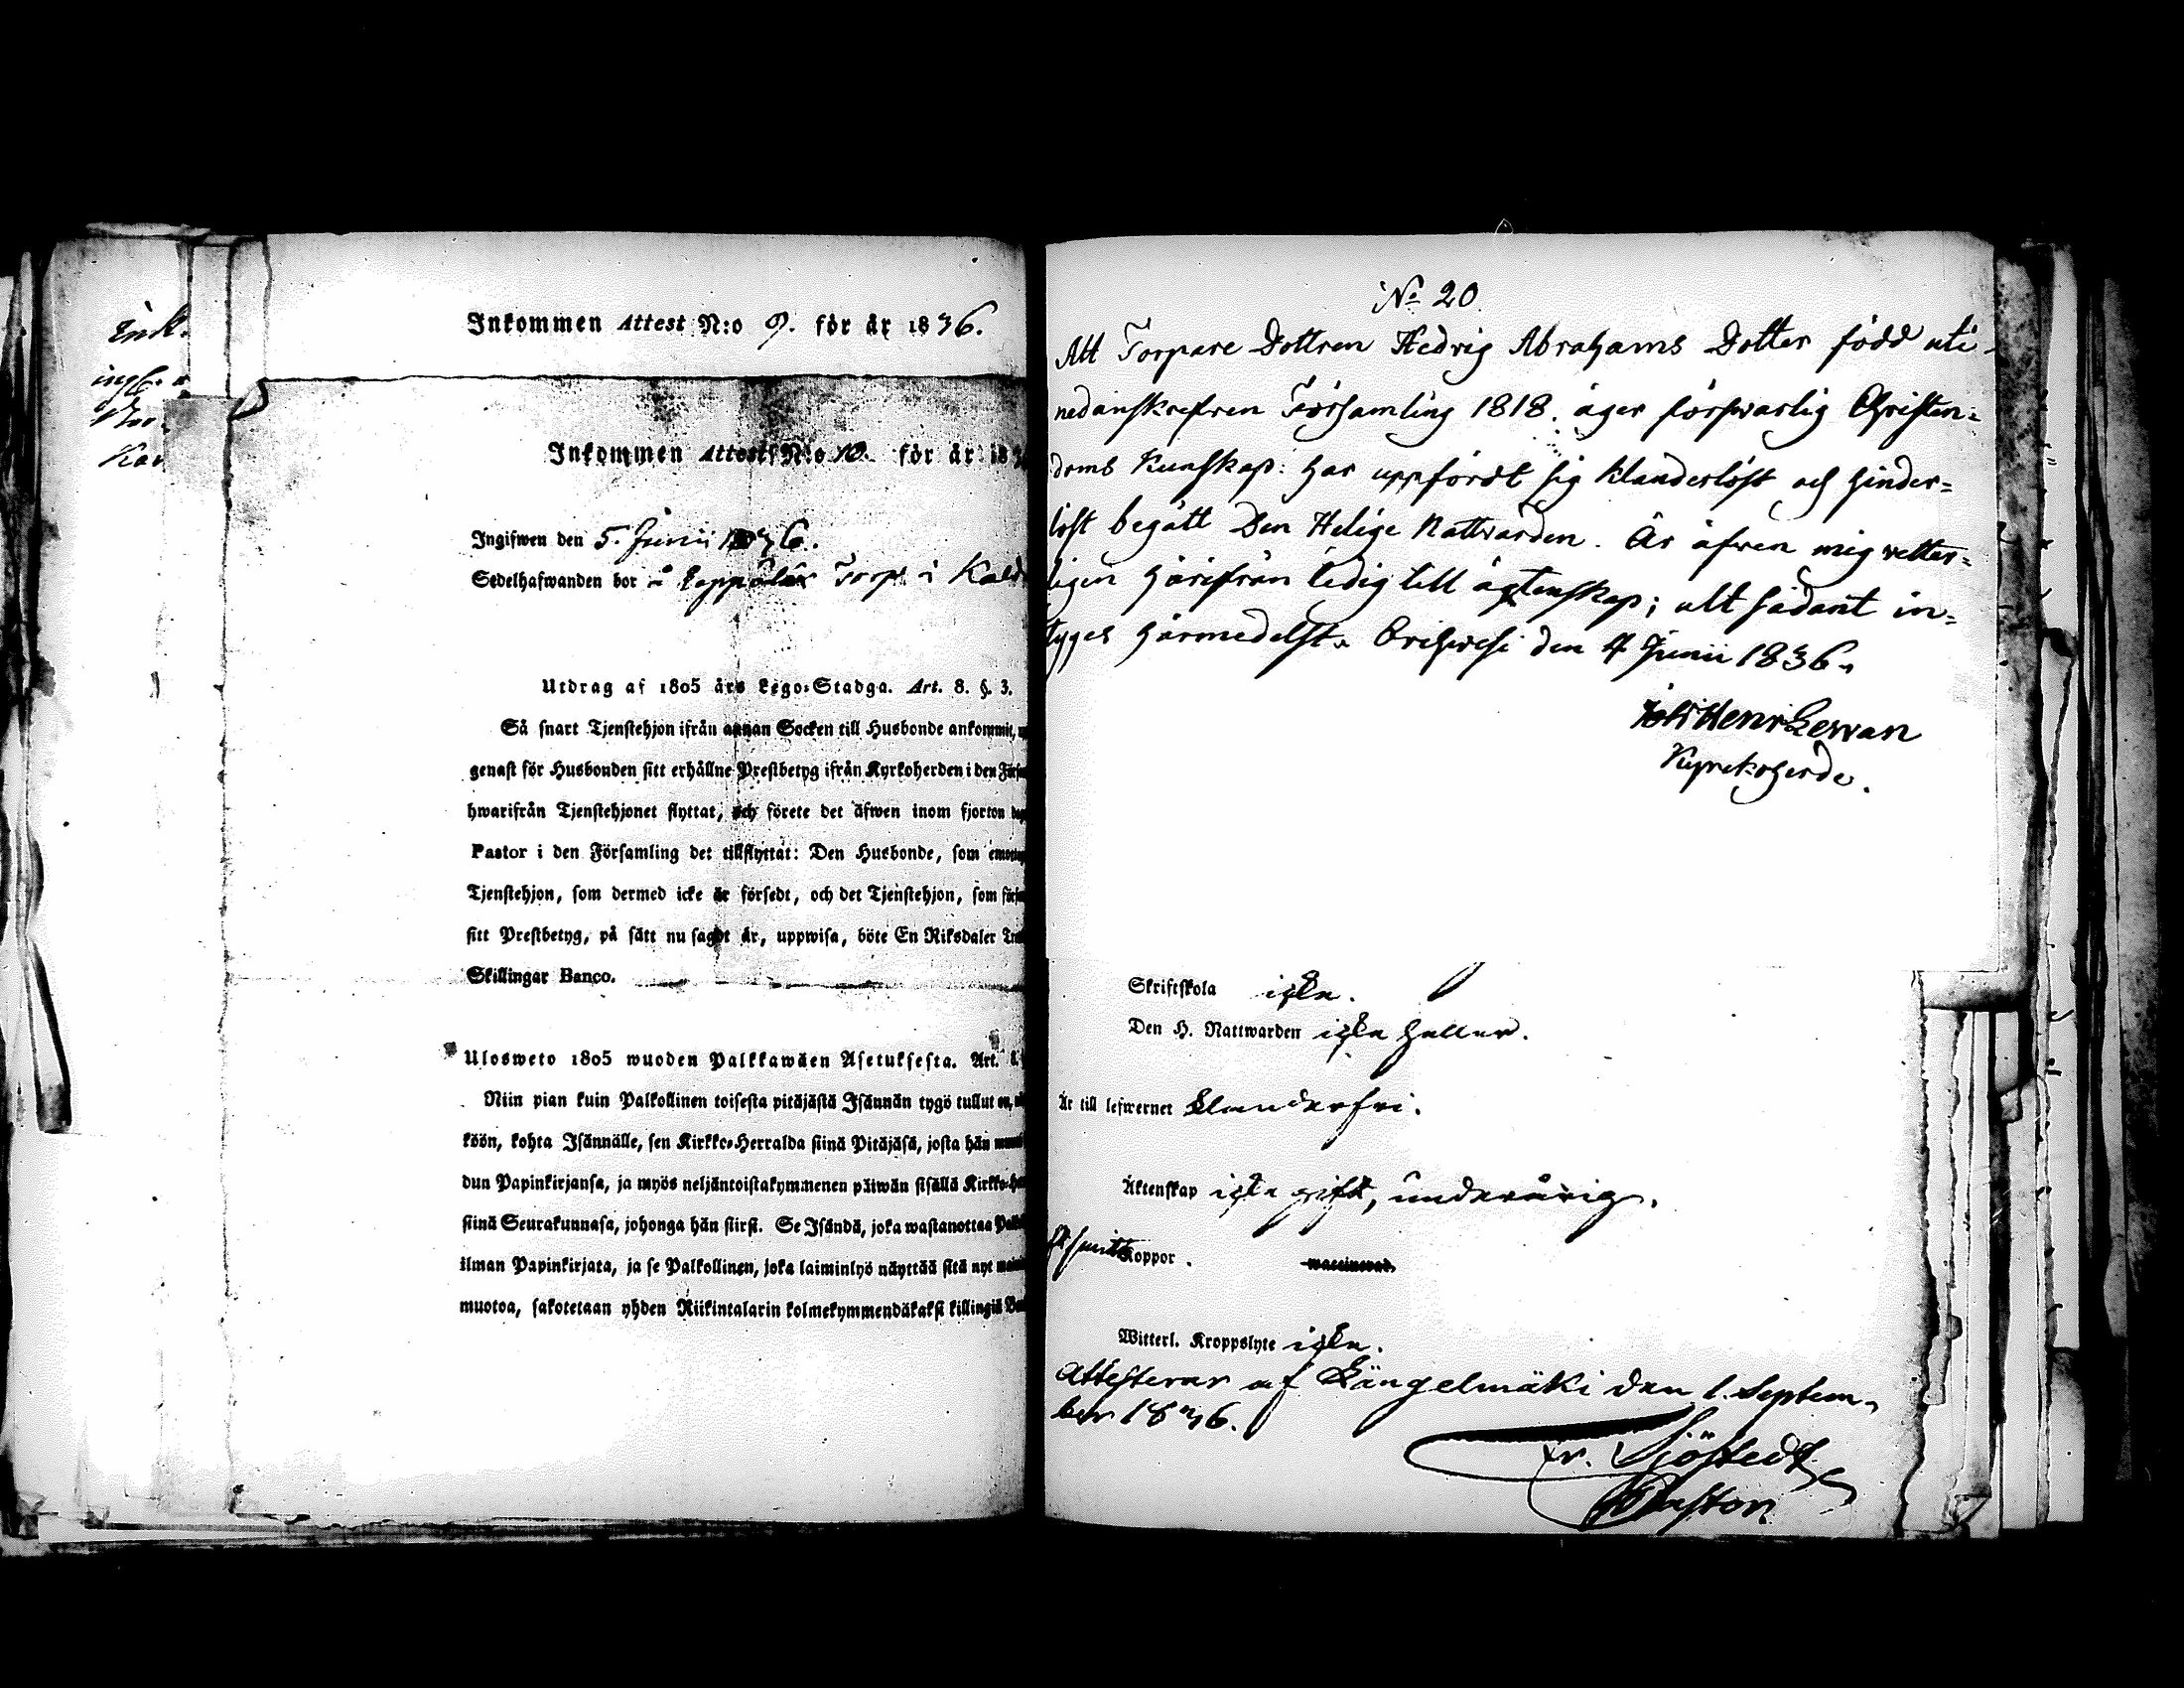 Inkommen Attest N:o 9. för år 1836.
Inkommen Attest N:o 10. för år 18
Ingifwen den 5. Junii 1836.
Sedelhafwanden bor å Torp i
Utdrag af 1805 års Lego-Stadga. Art. 8. §. 3.
Så snart Tjenstehjon ifrån annan Socken till Husbonde ankommit,
genast för Husbonden sitt erhållne Prestbetyg ifrån Kyrkoherden i den
hwarifrån Tjenstehjonet flyttat, och förete det äfwen inom fjorton
Pastor i den Församling det tillflyttat: Den Husbonde, som
Tjenstehjon, som dermed icke är försedt, och det Tjenstehjon, som
sitt Prestbetyg, på sätt nu sagdt är, uppwisa, böte En Riksdaler
Skillingar Banco.
Ulosweto 1805 wuoden Palkkawäen Asetuksesta. Art.
Niin pian kuin Palkollinen toisesta pitäjästä Isännän tygö tullut on,
köön, kohta Isännälle, sen Kirkko-Herralda siinä Pitäjäsä, josta hän
dun Papinkirjansa, ja myös neljäntoistakymmenen päiwän sisällä
siinä Seurakunnasa, johonga hän siirsi. Se Isändä, joka wastanottaa
ilman Papinkirjata, ja se Palkollinen, joka laiminlyö näyttää sitä nyt
muotoa, sakotetaan yhden Riikintalarin kolmekymmendäkaksi killingiä
No 20.
Att Torpare Dottren Hedvig Abrahams Dotter född uti
nedanskrefven Församling 1818. äger försvarlig Christen=
doms Kunskap: har uppfördt sig klanderlöst och hinder=
löst begått Den Helige Nattvarden. Är äfven mig vetter=
ligen härifrån ledig till ägtenskap; alt sådant in=
tyges härmedelst. Orihvesi den 4 Junii 1836.
Henr Lewan
Kyrckoherde.
Skriftskola icke.
Den H. Nattwarden icke heller.
Är till lefwernet klanderfri.
Äktenskap icke gift, underårig.
Koppor. waccinerad.
Witterl. Kroppslyte icke.
Attesterar af Längelmäki den 1. Septem=
ber 1836.
Fr. Sjöstedt
Pastor